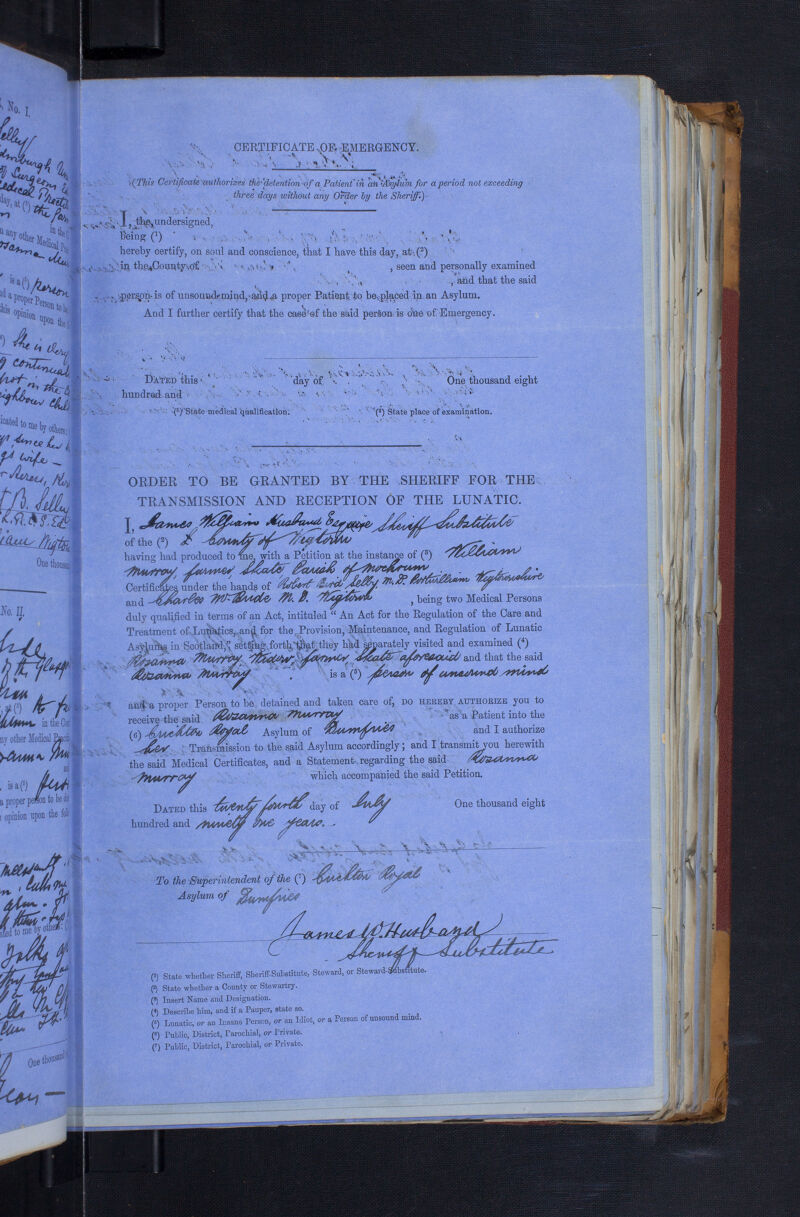 CERTIFICATE OF EMERGENCY.
(This Certificate authorizes the detention of a Patient in an Asylum for a period not exceeding
three days without any Order by the Sheriff.)
I, the undersigned,
being (¹)
hereby certify, on soul and conscience, that I have this day, at (²)
in the County of , seen and personally examined
, and that the said
person is of unsound mind, and a proper Patient to be placed in an Asylum.
And I further certify that the case of the said person is one of Emergency.
DATED this day of One thousand eight
hundred and
(¹) State medical qualification. (²) State place of examination.
ORDER TO BE GRANTED BY THE SHERIFF FOR THE
TRANSMISSION AND RECEPTION OF THE LUNATIC.
I, James William Husband Esquire Sheriff Substitute
of the (²) County of Wigtown
having had produced to me, with a Petition at the instance of (³) William
Murray, farmer Skate Parish of Mochrum
Certificates under the hands of Robert Bird Selly M.D. Portwilliam Wigtownshire
and Charles McBride M.D. Wigtown , being two Medical Persons
duly qualified in terms of an Act, intituled “ An Act for the Regulation of the Care and
Treatment of Lunatics, and for the Provision, Maintenance, and Regulation of Lunatic
Asylums in Scotland,” setting forth that they had separately visited and examined (⁴)
Rozanna Murray Widow farmer, Skate aforesaid and that the said
Rozanna Murray is a (⁵) person of unsound mind
and a proper Person to be detained and taken care of, DO HEREBY AUTHORIZE you to
receive the said Rozanna Murray as a Patient into the
(6) Crichton Royal Asylum of Dumfries and I authorize
her Transmission to the said Asylum accordingly; and I transmit you herewith
the said Medical Certificates, and a Statement regarding the said Rozanna
Murray which accompanied the said Petition.
DATED this twenty fourth day of July One thousand eight
hundred and ninety one years.
To the Superintendent of the (⁷) Crichton Royal
Asylum of Dumfries
James W. Husband
Sheriff Substitute
(¹) State whether Sheriff, Sheriff-Substitute, Steward, or Steward-Substitute.
(²) State whether a County or Stewartry.
(³) Insert Name and Designation.
(⁴) Describe him, and if a Pauper, state so.
(⁵) Lunatic, or an Insane Person, or an Idiot, or a Person of unsound mind.
(⁶) Public, District, Parochial, or Private.
(⁷) Public, District, Parochial, or Private.